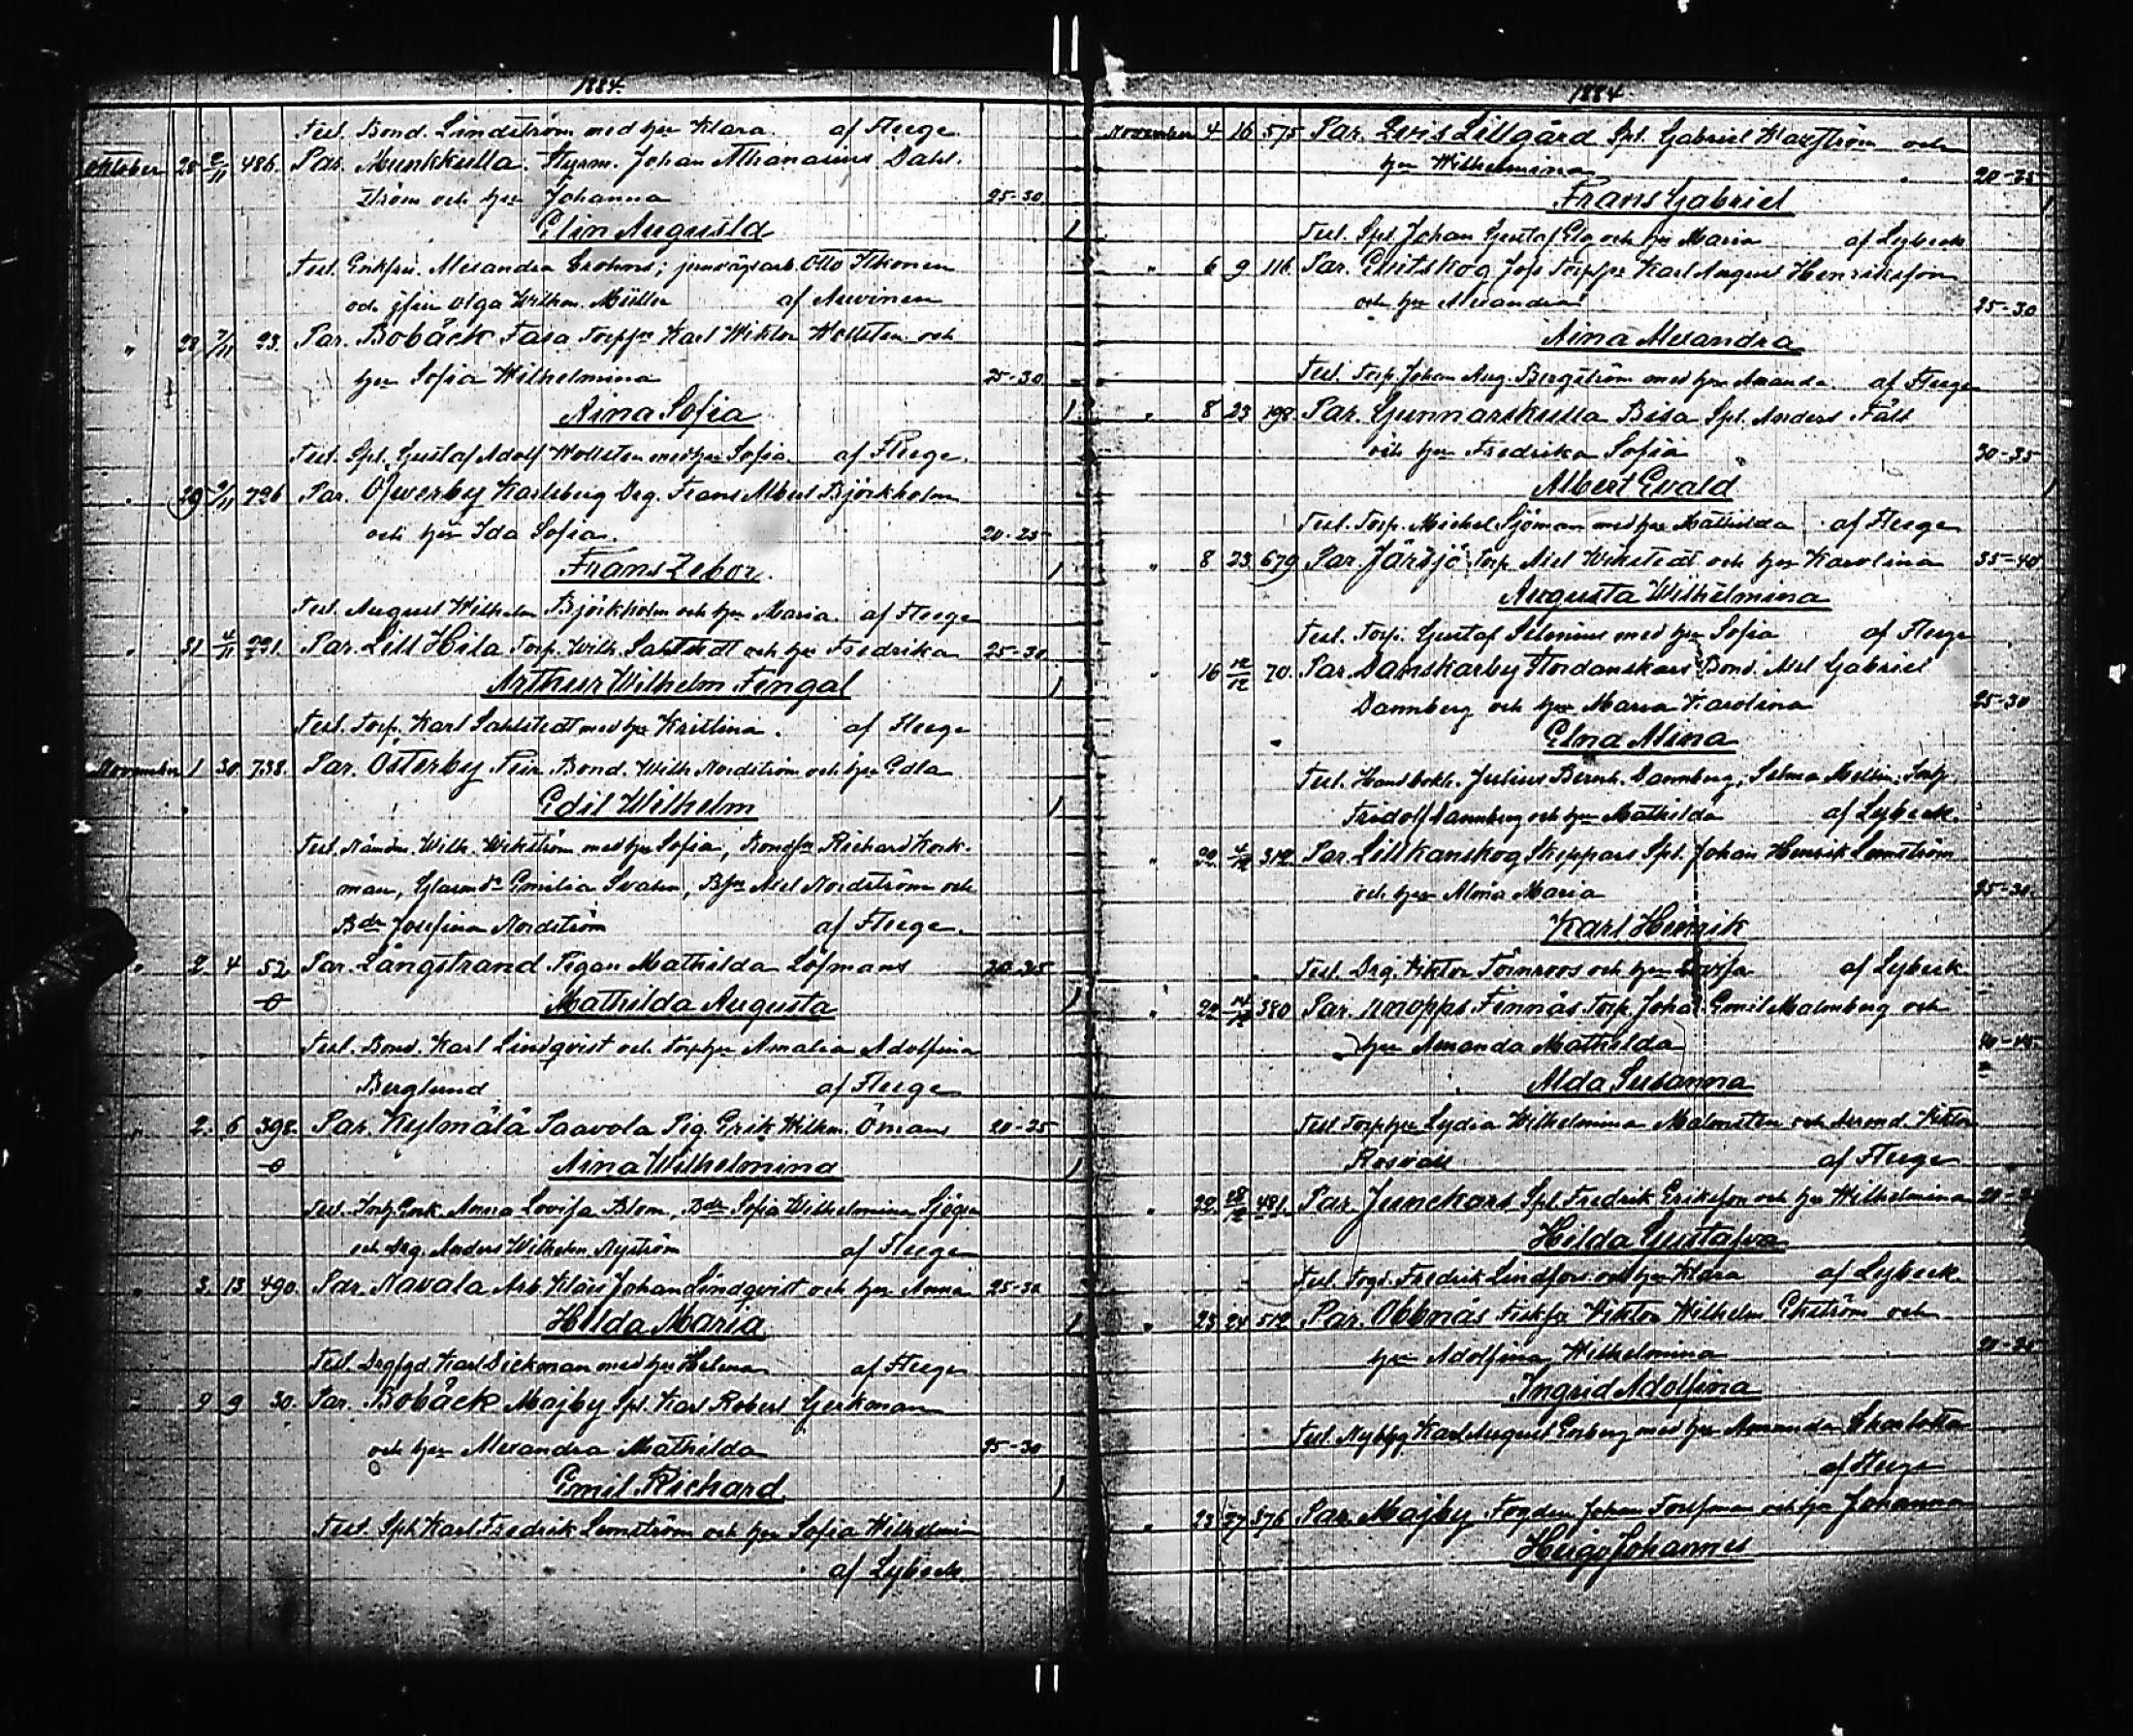 1884.
Test. Bond. Lindström med hu Klara af Fleege
Oktober 28 2/11 486. Par. Munkkulla. Styrm. Johan Athanasius Dahl-
ström och hu Johanna 25-30
Elin Augusta 1
Test. Enkfru. Alexandra Crohns; jernvägsarb. Otto Itkonen
och jfru Olga Wilhm. Müller af Auvinen
" 28 7/11 23. Par. Bobäck Fasa Torpfr Karl Wiktor Wollsten och
hu Sofia Wilhelmina 25-30
Aina Sofia 1
Test. Spt. Gustaf Adolf Wollsten med hu Sofia af Fleege.
" 29 9/11 726 Par. Öfwerby Karlsberg Drg. Frans Albert Björkholm
och hu Ida Sofia. 20-25
Frans Zebor. 1
Test. August Wilhelm Björkholm och hu Maria. af Fleege
" 31 4/11 221. Par. Lill Hila Torp. Wilh. Sahlstedt och hu Fredrika 25-30
Arthur Wilhelm Fingal 1
Test. Torp. Karl Sahlstedt med hu Kristina. af Fleege
November 1 30 738. Par. Österby Bond. Wilh. Nordström och hu Edla
Edil Wilhelm 1
Test. Nämdm. Wilh. Wikström med hu Sofia, Bondfr Richard Kork-
man, Emilia Svahn, Axel Nordström och
Bdr Josefina Nordström af Fleege.
" 2 4 52 Par. Långstrand Pigan Mathilda Löfmans 30-35
Mathilda Augusta 1
Test. Bond. Karl Lindqvist och torphu Amalia Adolfina
Berglund af Fleege
" 2. 6 398. Par. Kylmälä Saavola Pig. Erik Wilhm. Ömans 20-25
Aina Wilhelmina 1
Test. Enk. Anna Lovisa Blom, Bdr Sofia Wilhelmina Sjögren
och Drg. Anders Wilhelm Nyström af Fleege
" 3 13 490. Par. Navala Arb. Klas Johan Lindqvist och hu Anna 25-30
Hilda Maria 1
Test. Karl Dickman med hu Helena af Fleege
" 9 9 30. Par. Bobäck Majby Spt. Karl Robert Gerkman
och hu Alexandra Mathilda 25-30
Emil Richard 1
Test. Spt. Karl Fredrik Lemström och hu Sofia Wilhelmin
af Lybeck.
1884
November 4 16 575 Par. Lillgård Spt. Gabriel och
hu Wilhelmina
Frans Gabriel 1
Test. Spt. Johan Gustaf och hu Maria af Lybeck
" 6 9 116 Par. Karl August Henriksson
och hu Alexandra 25-30
Aina Alexandra
Test. Torp. Johan Aug. Bergström med hu Amanda. af Fleege
" 8 23 198. Par. Gunnarskulla Bisa Spt. Anders Fält
och hu Fredrika Sofia 30-35
Albert Evald 1
Test. Torp. Michel Sjöman med hu Mathilda af Fleege
" 8 23 679 Par. Järsjö Torp. Axel Wikstedt och hu Karolina 35-40
Augusta Wilhelmina
Test. Torp. Gustaf Selenius med hu Sofia af Fleege
" 16 12/12 70. Par. Danskarby Nordanskars Bond. Axel Gabriel
Dannberg och hu Maria Karolina 25-30
Elna Alina
Test. Handbokh. Julius Bernh. Dannberg, Selma
Fridolf Dannberg och hu Mathilda af Lybeck.
" 22. 4/12 312. Par. Lillkanskog Skeppars Spt. Johan Henrik Lemström
och hu Alma Maria 25-30
Karl Henrik 1
Test. Drg. Viktor Törnroos och hu Lovisa af Lybeck
" 22 14/12 380 Par. Finnäs Torp. Johan Emil Malmberg och
hu Amanda Mathilda 40-45
Alda Susanna
Test. Torphu Lydia Wilhelmina Malmsten och Arend. Viktor
Rosvall af Fleege
" 22. 28/12 481. Par. Junckars Spt. Fredrik Eriksson och hu Wilhelmina
Hilda Gustafva
Test. Fredrik Lindfors och hu Klara af Lybeck.
" 23 24 512. Par. Obbnäs Fiskfr Viktor Wilhelm Ekström och
hu Adolfina Wilhelmina
Ingrid Adolfina
Test. Nybyg. Karl August Enberg med hu Amanda Charlotta
af Fleege
" 23 27 376 Par. Majby Fogden Johan och hu Johanna
Hugo Johannes